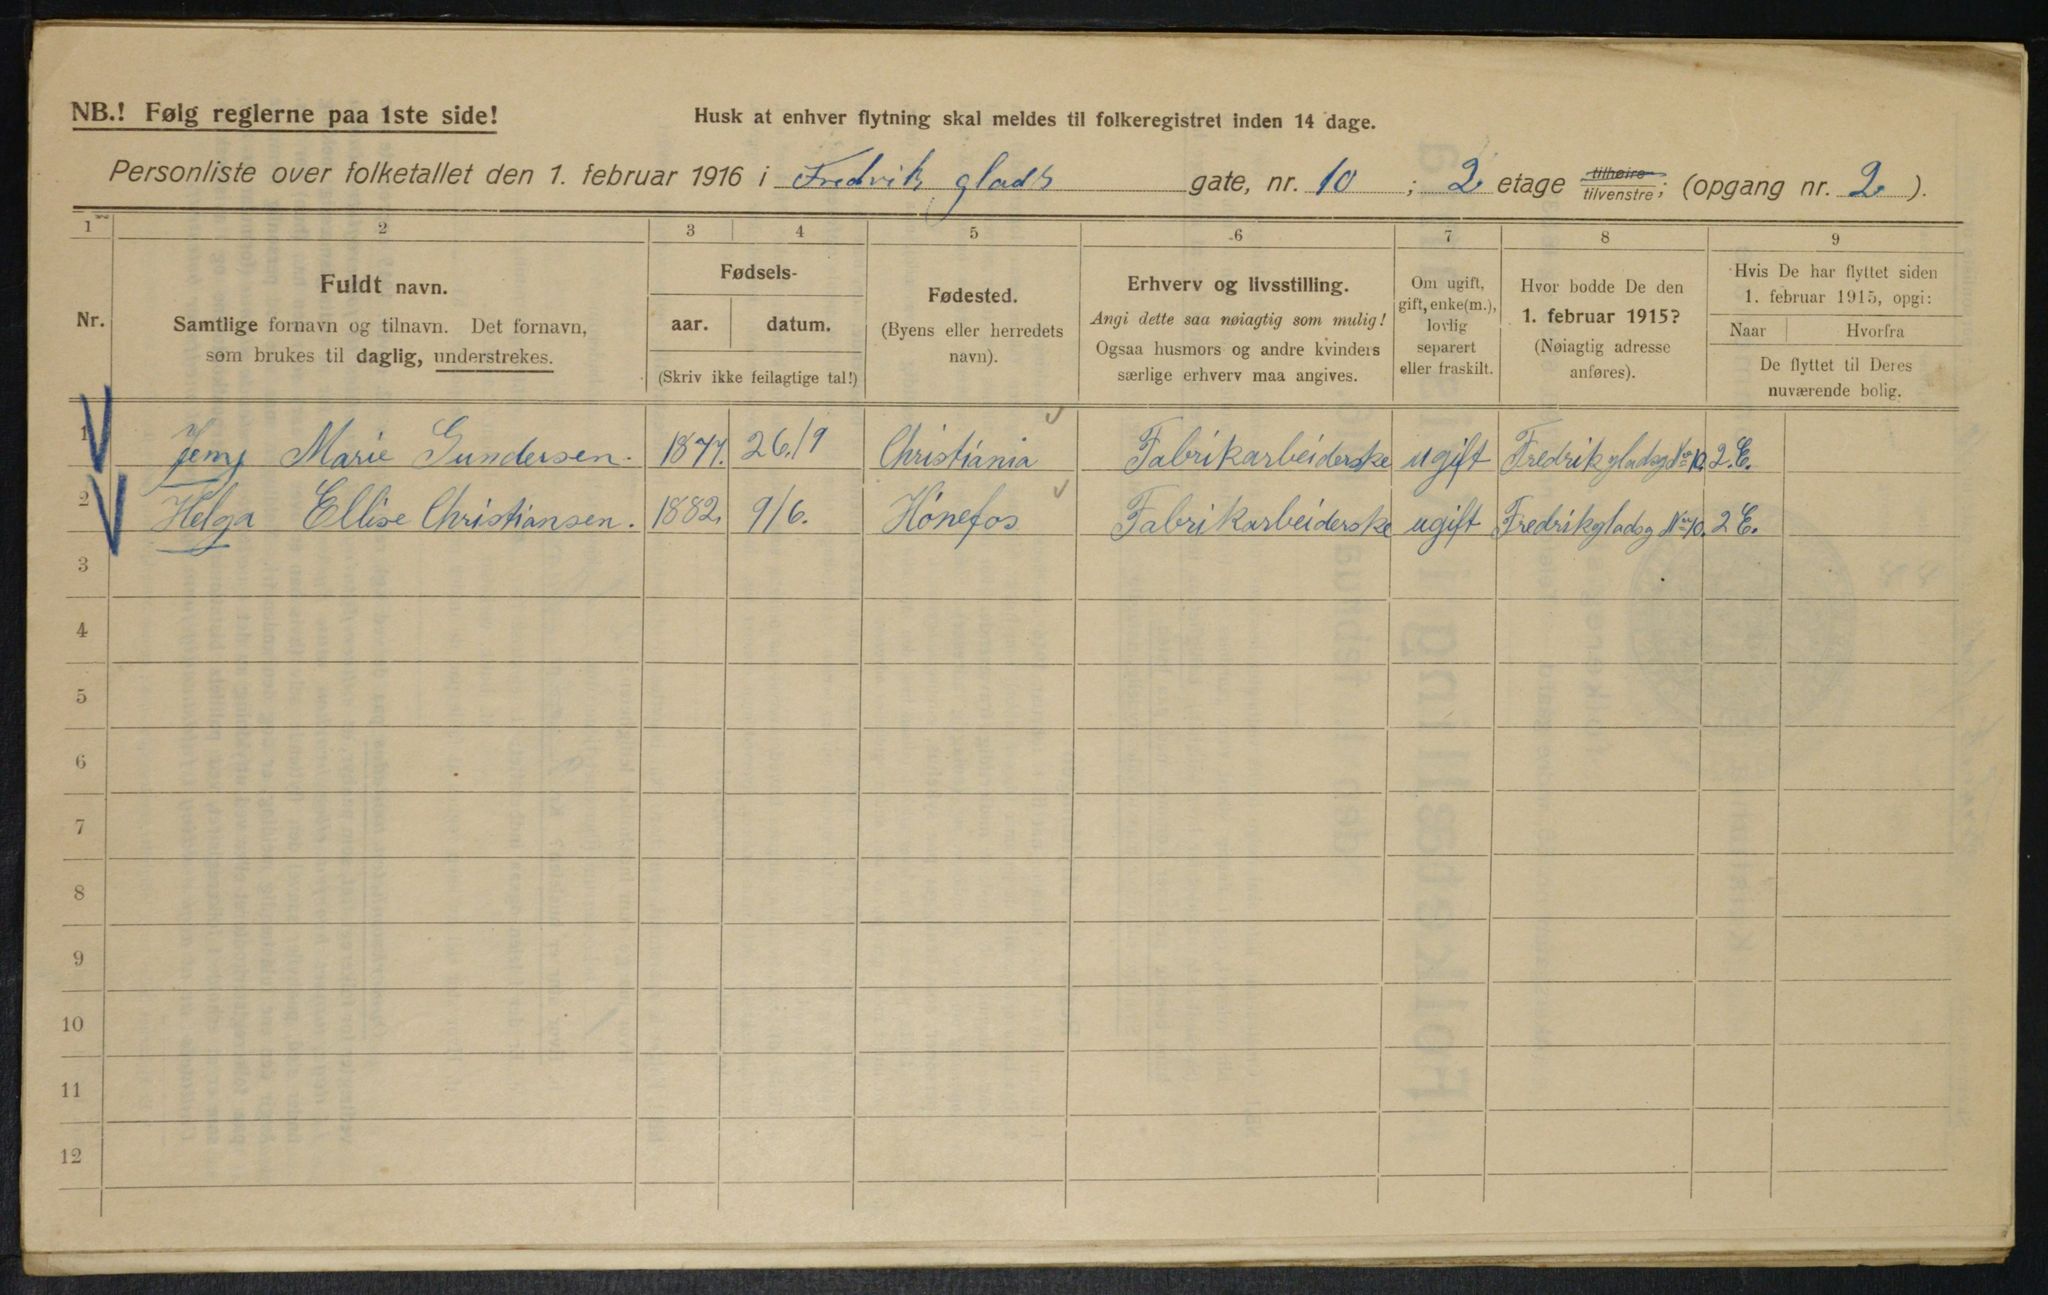 NB.! Følg reglerne paa 1ste side!
Husk at enhver flytning skal meldes til folkeregistret inden 14 dage.
Personliste over folketallet den 1. februar 1916 i Fredrik glads gate, nr. 10 ; 2 etage tilhøire tilvenstre; (opgang nr. 2 ).
1 2 3 4 5 6 7 8 9
Nr.
Fuldt navn.
Samtlige fornavn og tilnavn. Det fornavn,
som brukes til daglig, understrekes.
Fødsels-
aar. datum.
(Skriv ikke feilagtige tal!)
Fødested.
(Byens eller herredets
navn).
Erhverv og livsstilling.
Angi dette saa nøiagtig som mulig!
Ogsaa husmors og andre kvinders
særlige erhverv maa angives.
Om ugift,
gift, enke(m.),
lovlig
separert
eller fraskilt.
Hvor bodde De den
1. februar 1915?
(Nøiagtig adresse
anføres).
Hvis De har flyttet siden
1. februar 1915, opgi:
Naar Hvorfra
De flyttet til Deres
nuværende bolig.
1 Jeny Marie Gundersen. 1877. 26/9 Christiania Fabrikarbeiderske ugift Fredrikgladsg No 10. 2. E.
2 Helga Ellise Christiansen. 1882. 9/6. Hønefos Fabrikarbeiderske ugift Fredrikgladsg No 10. 2 E.
3
4
5
6
7
8
9
10
11
12